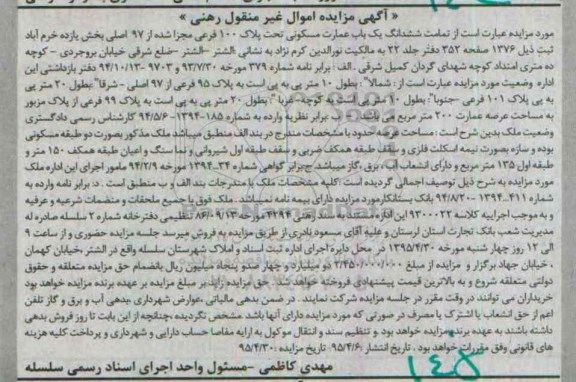 « آگهی مزایده اموال غیر منقول رهنی »
مورد مزایده عبارت است از تمامت ششدانگ یک باب عمارت مسکونی تحت پلاک ۱۰۰ فرعی مجزا شده از ۹۷ اصلی بخش یازده خرم آباد
ثبت ذیل ۱۳۷۶ صفحه ۳۵۲ دفتر جلد ۲۲ به مالکیت نورالدین کرم نژاد به نشانی :الشتر –الشتر –ضلع شرقی خیابان بروجردی – کوچه
ده متری امتداد کوچه شهدای گردان کمیل شرقی . الف : برابر نامه شماره ۳۷۹ مورخه ۹۳/۷/۳۰ و ۹۷۰۳ –۹۴/۱۰/۱۳ دفتر بازداشتی این
اداره وضعیت مورد مزایده عبارت است از : شمالا": بطول ۱۰ متر پی به پی است به پلاک ۹۵ فرعی از ۹۷ اصلی –شرقا": بطول ۲۰ متر پی
به پی پلاک ۱۰۱ فرعی –جنوبا": بطول ۱۰ متر پی است به کوچه–غربا": بطول ۲۰ متر پی به پی است به پلاک ۹۹ فرعی از پلاک مزبور
به مساحت عرصه عمارت ۲۰۰ متر مربع می باشد . ب: برابر نظریه وارده به شماره ۱۸۵–۱۳۹۴–۹۴/۵/۶ کارشناس رسمی دادگستری
وضعیت ملک بدین شرح است : مساحت عرصه حدود با مشخصات مندرج در بند الف منطبق میباشد ملک مذکور بصورت دو طبقه مسکونی
بوده و سازه بصورت نیمه اسکلت فلزی و سقف طبقه همکف ضربی و سقف طبقه اول شیروانی و نما سنگ و اعیان طبقه همکف ۱۵۰ متر و
طبقه اول ۱۳۵ متر مربع و دارای انشعاب آب ، برق ،گاز میباشد.ج:برابر گواهی شماره ۳۴–۱۳۹۴ مورخه ۹۴/۲/۹ مامور اجرای این اداره ملک
مورد مزایده به شرح ذیل توصیف اجمالی گردیده است :کلیه مشخصات ملک با مندرجات بند الف و ب منطبق است . د: برابر نامه وارده به
شماره ۴۱۱–۱۳۹۴ –۹۴/۸/۲۰ بانک بستانکار مورد مزایده دارای بیمه نامه نمیباشد . ملک فوق با جمیع ملحقات و منضمات شرعیه و عرفیه
و به موجب اجراییه کلاسه ۹۳۰۰۰۲۲ این اداره رهنی ۴۲۹۴ مورخه ۸۶/۰۹/۱۳ تنظیمی دفترخانه شماره ۲ سلسله صادره له
مدیریت شعب بانک تجارت استان لرستان و علیه آقای مسعود بادری از طریق مزایده به فروش میرسد جلسه مزایده حضوری و از ساعت ۹
الی ۱۲ روز چهار شنبه مورخه ۱۳۹۵/۴/۳۰ در محل دایره اجرای اداره ثبت اسناد و املاک شهرستان سلسله واقع در الشتر ،خیابان کهمان
، خیابان جهاد برگزار و مزایده از مبلغ ۲/۴۵۰/۰۰۰/۰۰۰ دو میلیارد و چهار صد و پنجاه میلیون ریال بانضمام حق مزایده متعلقه و حقوق
دولتی متعلقه شروع و به بالاترین قیمت پیشنهادی فروخته خواهد شد . حق مزایده زاید بر مبلغ مزایده بر عهده برنده مزایده خواهد بود
خریداران می توانند در وقت مقرر در جلسه مزایده شرکت نمایند . در ضمن بدهی مالیاتی ،عوارض شهرداری ،بدهی آب و برق و گاز تلفن
اعم از حق انشعاب یا اشتراک یا مصرف در صورتی که مورد مزایده دارای آنها باشد مشخص نگردیده ،چنانچه از این بابت تا روز فروش بدهی
داشته باشند به عهده برنده مزایده خواهد بود و تنظیم سند و انتقال موکول به ارایه مفاصا حساب دارایی و شهرداری و پرداخت کلیه هزینه
های قانونی وفق مقررات خواهد بود . تاریخ انتشار :۹۵/۴/۶ تاریخ مزایده :۹۵/۴/۳۰
مهدی کاظمی –مسئول واحد اجرای اسناد رسمی سلسله